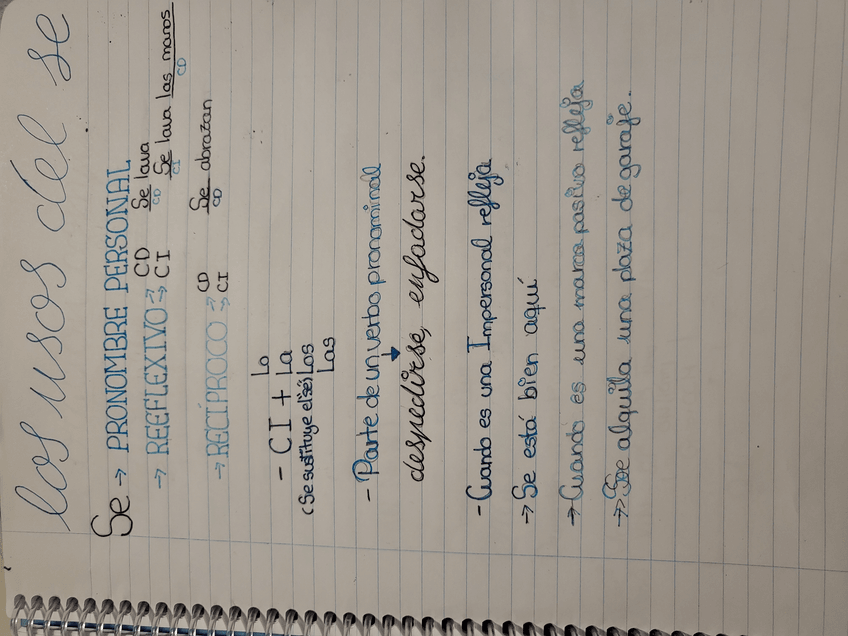 los usos del se
Se → PRONOMBRE PERSONAL
→ REEFLEXIVO → CD Se lava
CD
→ CI Se lava las manos
CI CD
→ RECÍPROCO → CD Se abrazan
CD
→ CI
- CI + Lo
La
(Se sustituye el sé) Los
Las
- Parte de un verbo pronominal
despedirse, enfadarse.
- Cuando es una Impersonal refleja
→ Se está bien aquí
→ Cuando es una marca pasiva refleja
→ Se alquila una plaza de garaje.